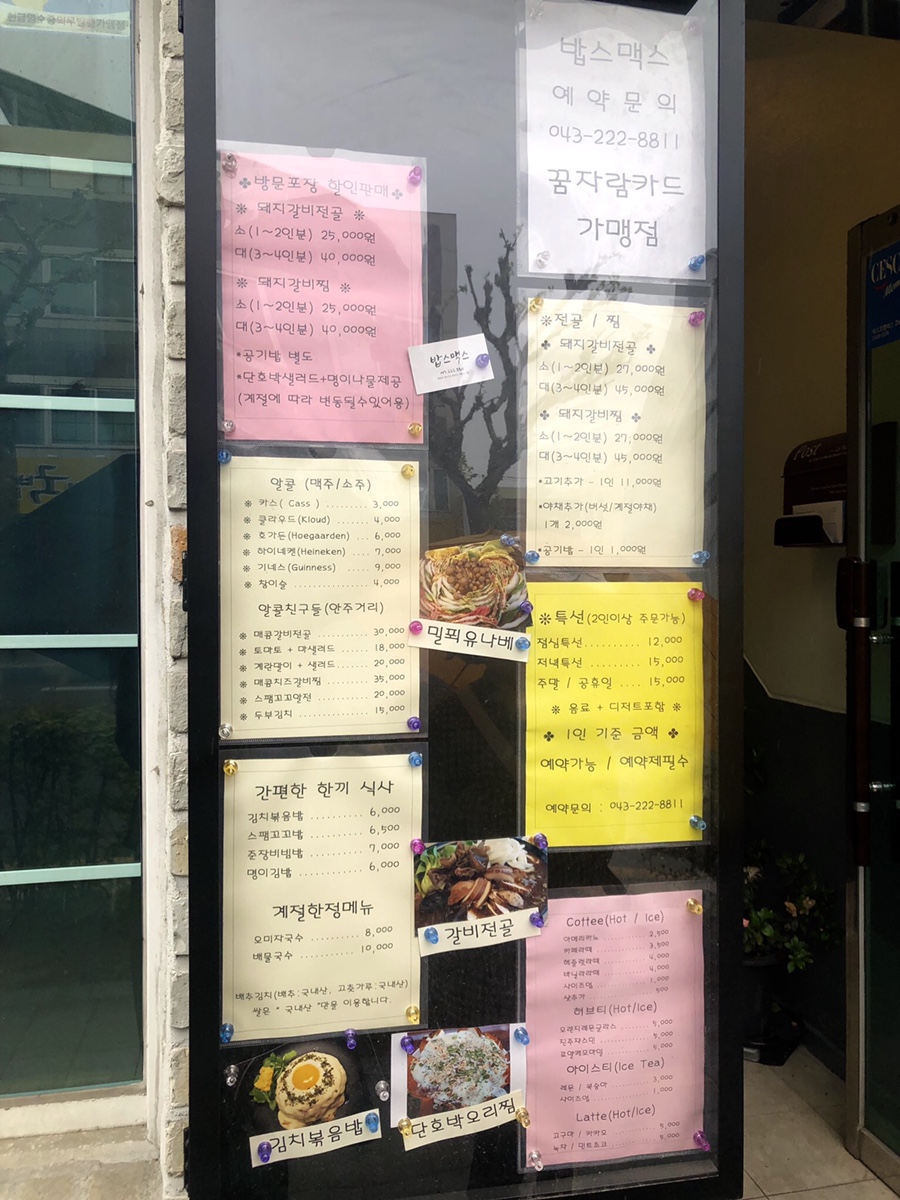 밥스맥스
예 약 문 의
043-222-8811
꿈자람카드
가맹점
✤방문포장 할인판매✤
※ 돼지갈비전골 ※
소(1~2인분) 25,000원
대(3~4인분) 40,000원
※ 돼지갈비찜 ※
소(1~2인분) 25,000원
대(3~4인분) 40,000원
*공기밥 별도
*단호박샐러드+명이나물제공
(계절에 따라 변동될수있어용)
밥스맥스
※전골 / 찜
✤ 돼지갈비전골 ✤
소(1~2인분) 27,000원
대(3~4인분) 45,000원
✤ 돼지갈비찜 ✤
소(1~2인분) 27,000원
대(3~4인분) 45,000원
*고기추가 - 1인 11,000원
*야채추가(버섯/계절야채)
1개 2,000원
*공기밥 - 1인 1,000원
알콜 (맥주/소주)
※ 카스( Cass ) ........ 3,000
※ 클라우드(Kloud) ....... 4,000
※ 호가든(Hoegaarden) ... 6,000
※ 하이네켄(Heineken) .... 7,000
※ 기네스(Guinness) ...... 9,000
※ 참이슬 ............... 4,000
알콜친구들(안주거리)
※ 매콤갈비전골 ......... 30,000
※ 토마토 + 마샐러드 ..... 18,000
※ 계란말이 + 샐러드...... 20,000
※ 매콤치즈갈비찜 ....... 35,000
※ 스팸꼬꼬알전 ......... 20,000
※ 두부김치 ............ 15,000
밀푀유나베
※특선(2인이상 주문가능)
점심특선.......... 12,000
저녁특선 ......... 15,000
주말 / 공휴일 .... 15,000
※ 음료 + 디저트포함 ※
✤ 1인 기준 금액 ✤
예약가능 / 예약제필수
예약문의 : 043-222-8811
간편한 한끼 식사
김치볶음밥 ......... 6,000
스팸꼬꼬밥 ......... 6,500
춘장비빔밥 ......... 7,000
명이김밥 .......... 6,000
계절한정메뉴
오미자국수 .......... 8,000
배물국수 .......... 10,000
배추김치(배추:국내산, 고춧가루:국내산)
쌀은 " 국내산 "만을 이용합니다.
갈비전골
Coffee(Hot / Ice)
아메리카노 .......... 2,500
카페라떼 .......... 3,500
헤즐럿라떼 ......... 4,000
바닐라라떼 ......... 4,000
사이즈업 .......... 1,000
샷추가 .......... 500
허브티(Hot/Ice)
오렌지레몬글라스 ...... 5,000
진주쟈스민 .......... 5,000
로얄케모마일 ........ 5,000
아이스티(Ice Tea)
레몬 / 복숭아 ........ 3,000
사이즈업 .......... 1,000
Latte(Hot/Ice)
고구마 / 카카오 ....... 5,000
녹차 / 민트초코 ....... 5,000
김치볶음밥
단호박오리찜
Post
CESCO